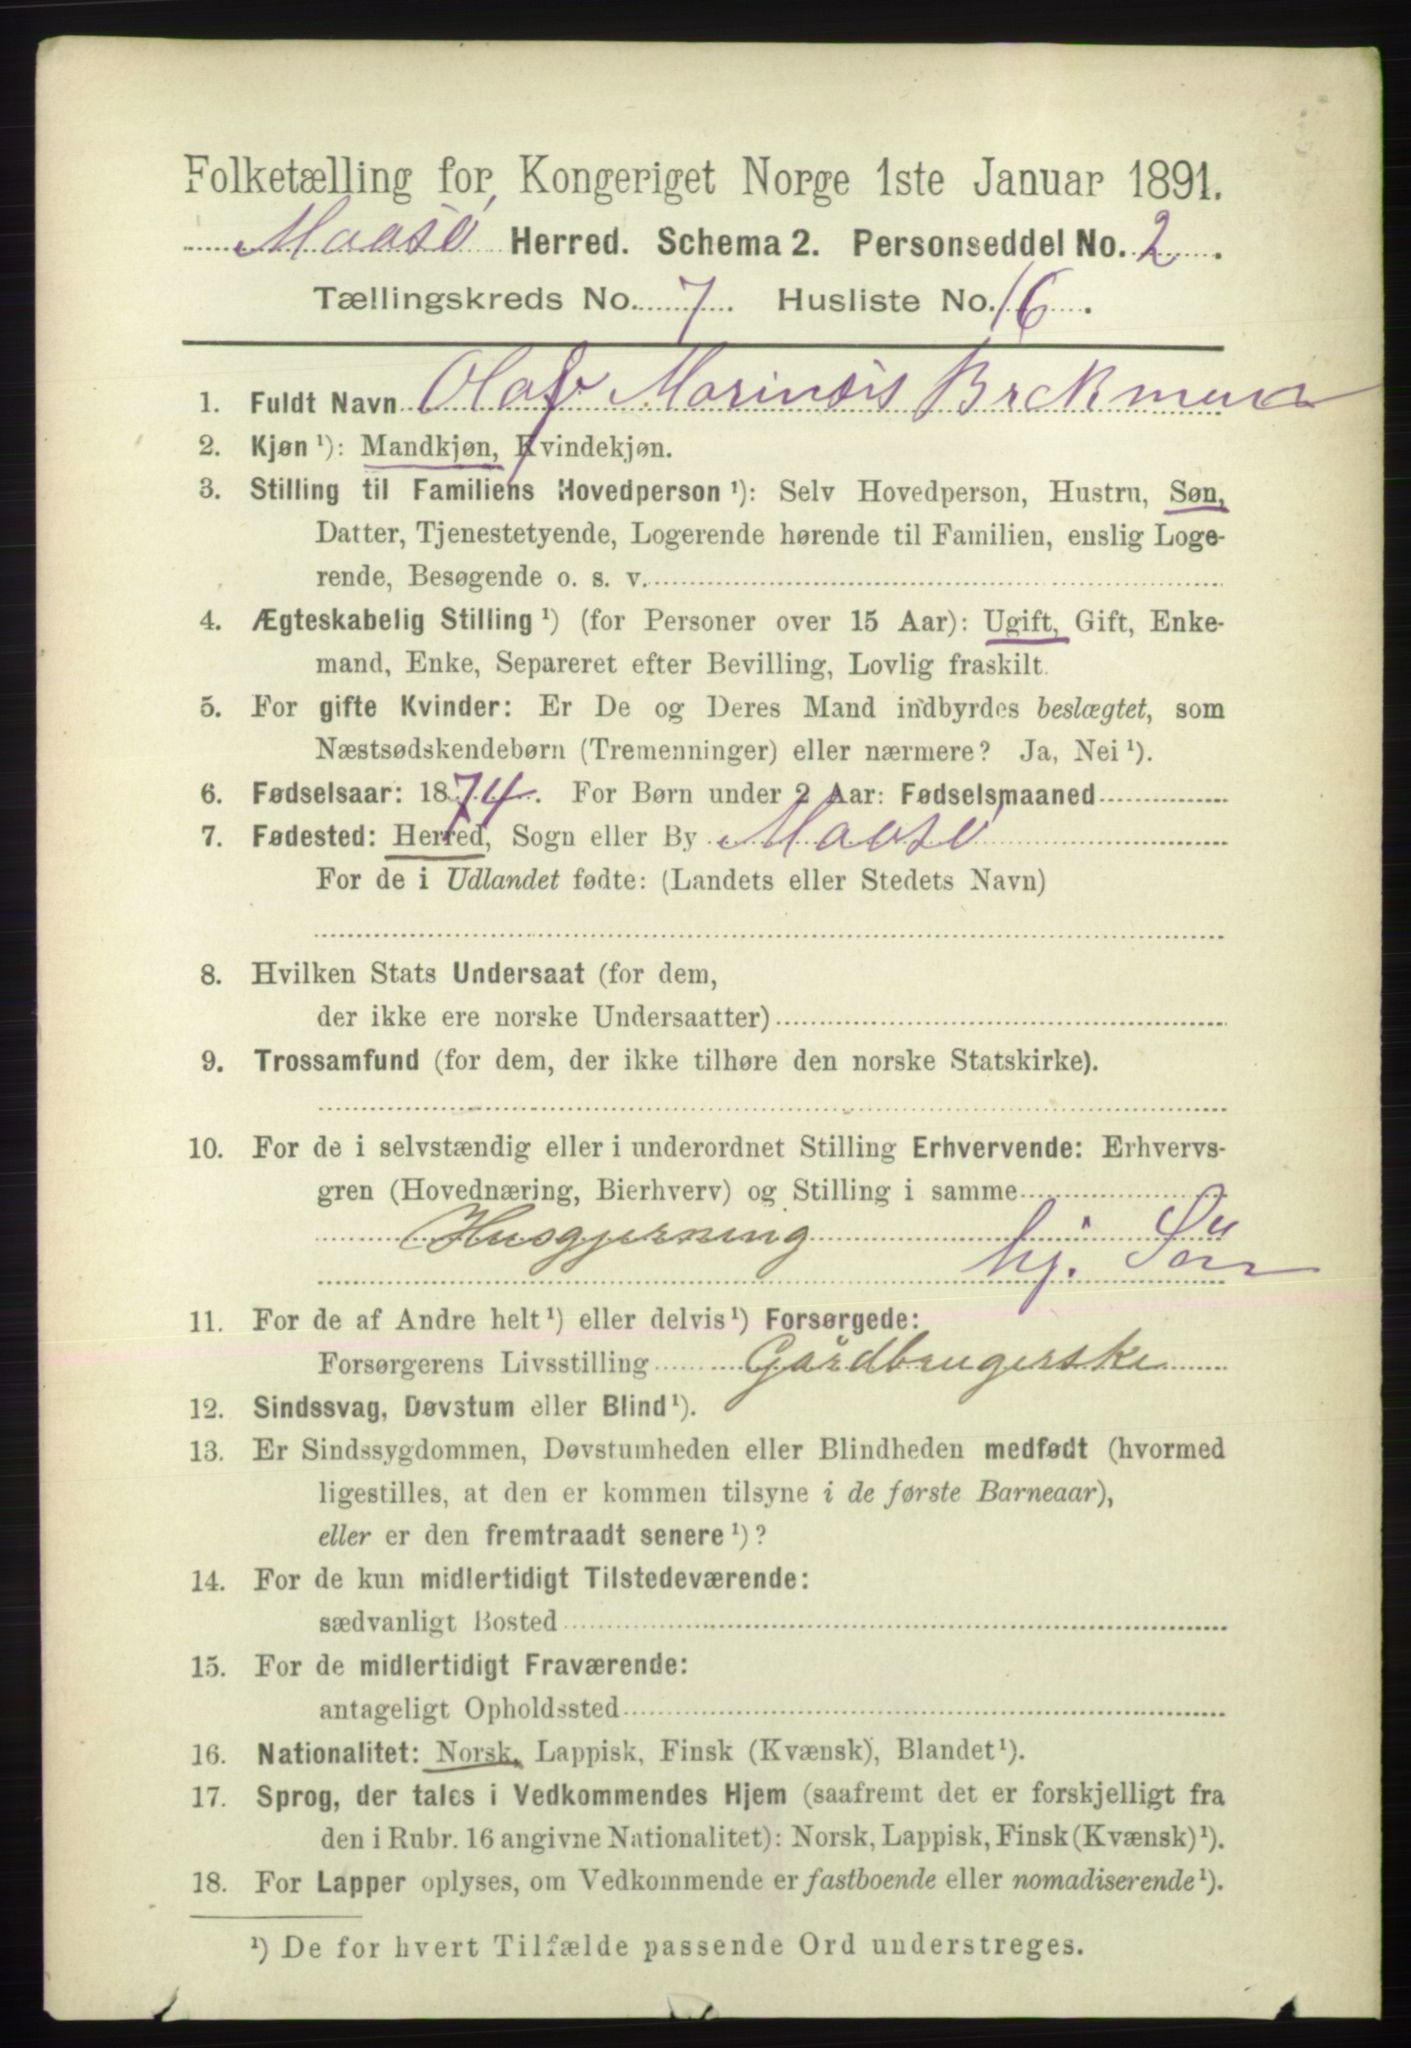 Folketælling for Kongeriget Norge 1ste Januar 1891.
Maasø Herred. Schema 2. Personseddel No. 2.
Tællingskreds No. 7. Husliste No. 16.
1. Fuldt Navn Olaf Marinius
2. Kjøn ¹): Mandkjøn, Kvindekjøn.
3. Stilling til Familiens Hovedperson ¹): Selv Hovedperson, Hustru, Søn,
Datter, Tjenestetyende, Logerende hørende til Familien, enslig Loge-
rende, Besøgende o. s. v.
4. Ægteskabelig Stilling ¹) (for Personer over 15 Aar): Ugift, Gift, Enke-
mand, Enke, Separeret efter Bevilling, Lovlig fraskilt.
5. For gifte Kvinder: Er De og Deres Mand indbyrdes beslægtet, som
Næstsødskendebørn (Tremenninger) eller nærmere? Ja, Nei ¹).
6. Fødselsaar: 1874. For Børn under 2 Aar: Fødselsmaaned
7. Fødested: Herred, Sogn eller By Maasø
For de i Udlandet fødte: (Landets eller Stedets Navn)
8. Hvilken Stats Undersaat (for dem,
der ikke ere norske Undersaatter)
9. Trossamfund (for dem, der ikke tilhøre den norske Statskirke).
10. For de i selvstændig eller i underordnet Stilling Erhvervende: Erhvervs-
gren (Hovednæring, Bierhverv) og Stilling i samme
Husgjerning hj. Søn
11. For de af Andre helt ¹) eller delvis ¹) Forsørgede:
Forsørgerens Livsstilling Gårdbrugerske
12. Sindssvag, Døvstum eller Blind ¹).
13. Er Sindssygdommen, Døvstumheden eller Blindheden medfødt (hvormed
ligestilles, at den er kommen tilsyne i de første Barneaar),
eller er den fremtraadt senere ¹)?
14. For de kun midlertidigt Tilstedeværende:
sædvanligt Bosted
15. For de midlertidigt Fraværende:
antageligt Opholdssted
16. Nationalitet: Norsk, Lappisk, Finsk (Kvænsk), Blandet ¹).
17. Sprog, der tales i Vedkommendes Hjem (saafremt det er forskjelligt fra
den i Rubr. 16 angivne Nationalitet): Norsk, Lappisk, Finsk (Kvænsk) ¹).
18. For Lapper oplyses, om Vedkommende er fastboende eller nomadiserende ¹).
¹) De for hvert Tilfælde passende Ord understreges.